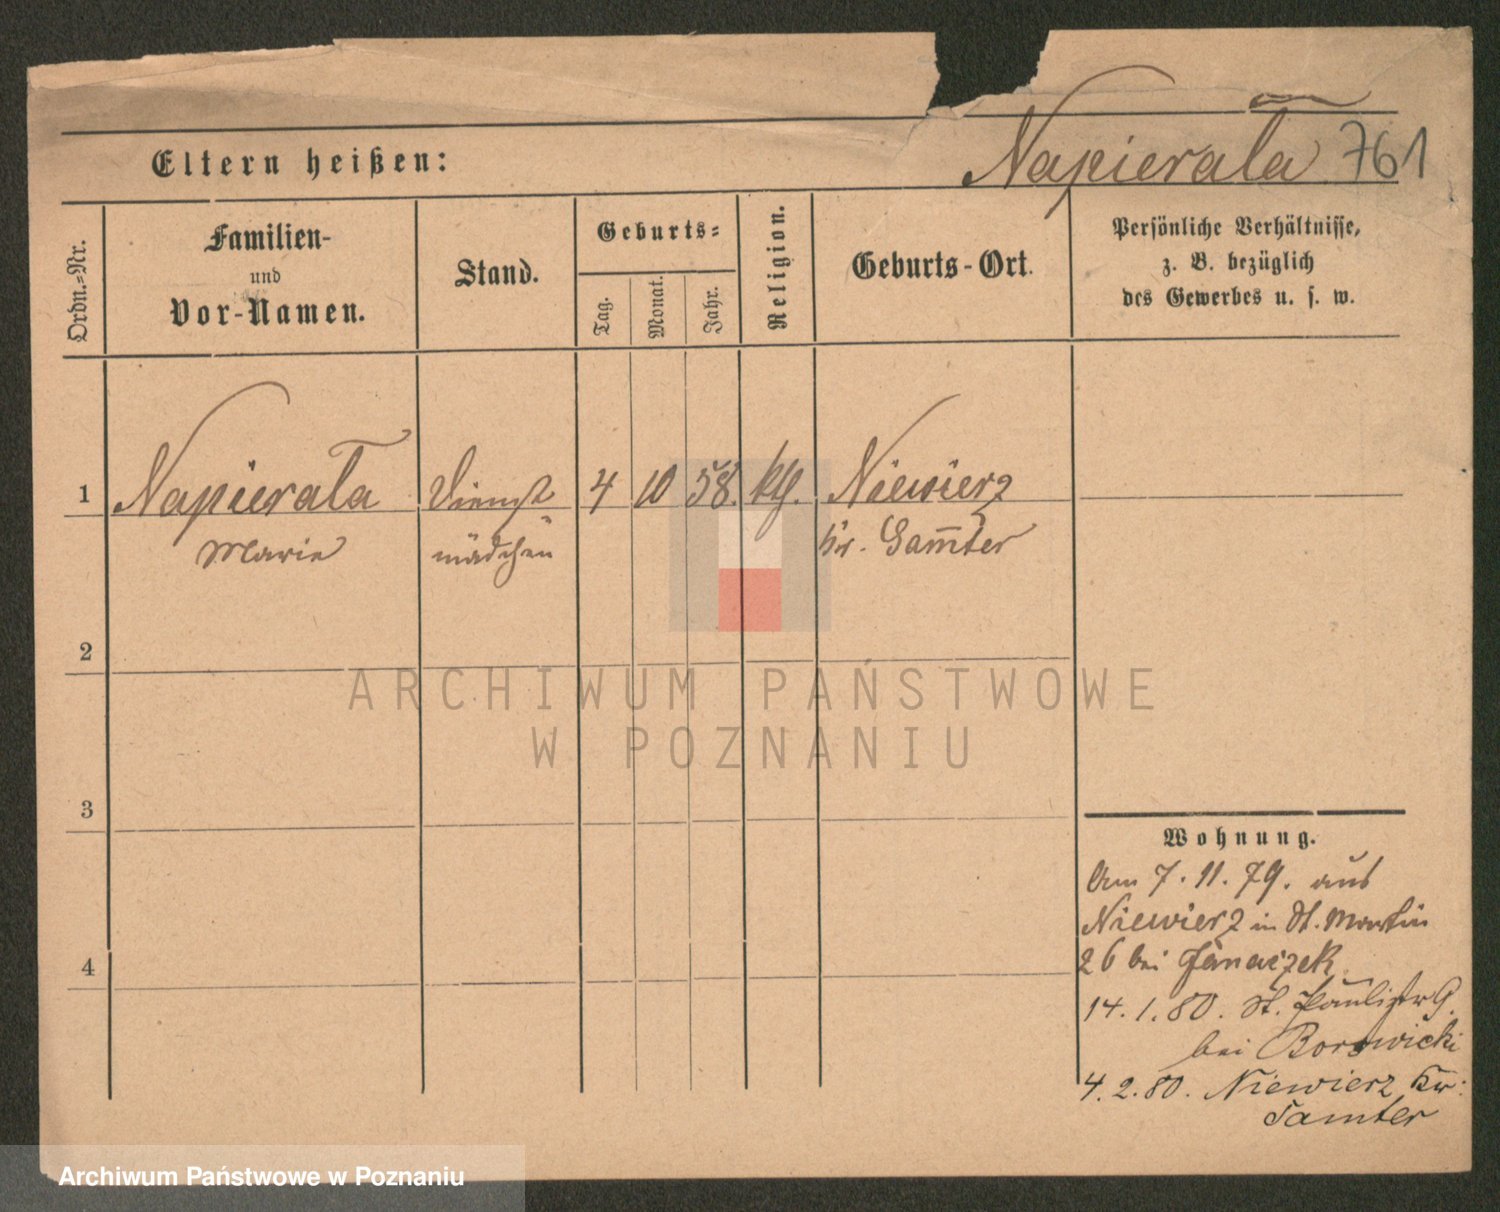 Napierała 761
Eltern heißen:
Ordn.=Nr.
Familien-
und
Vor-Namen.
Stand.
Geburts=
Tag.
Monat.
Jahr.
Religion.
Geburts-Ort.
Persönliche Verhältnisse,
z. B. bezüglich
des Gewerbes u. s. w.
1 Napierała Dienst 4 10 58. kth. Niewierz
Marie mädchen Kr. Samter
2
3
4
Wohnung.
Am 7.11.79. aus
Niewierz in St. Martin
26 bei
14.1.80. St. Paulistr 9.
bei Borowicki
4.2.80. Niewierz Kr:
Samter
ARCHIWUM PAŃSTWOWE
W POZNANIU
Archiwum Państwowe w Poznaniu